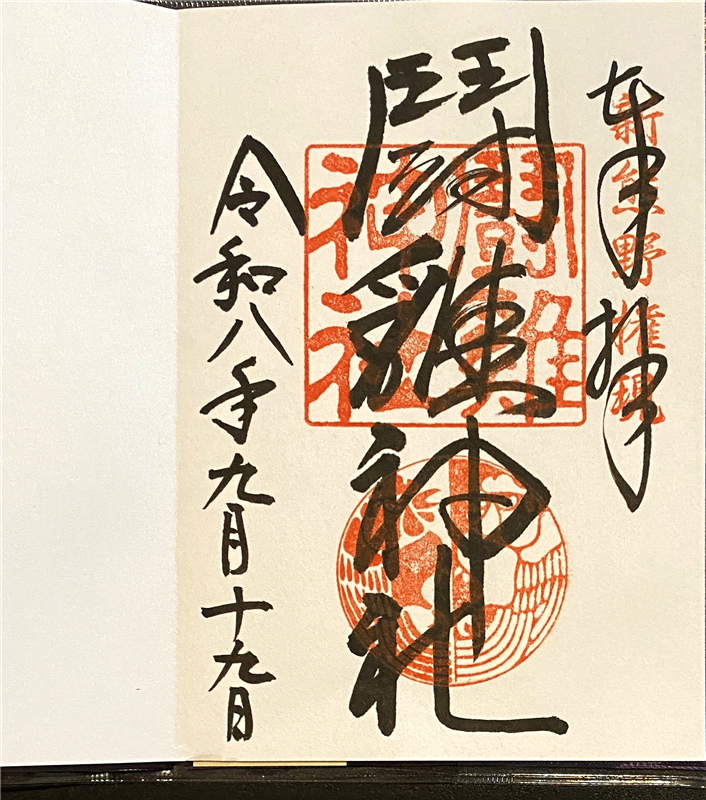 奉拝
新熊野權現
鬪雞神社
鬪雞神社
令和八年九月十九日